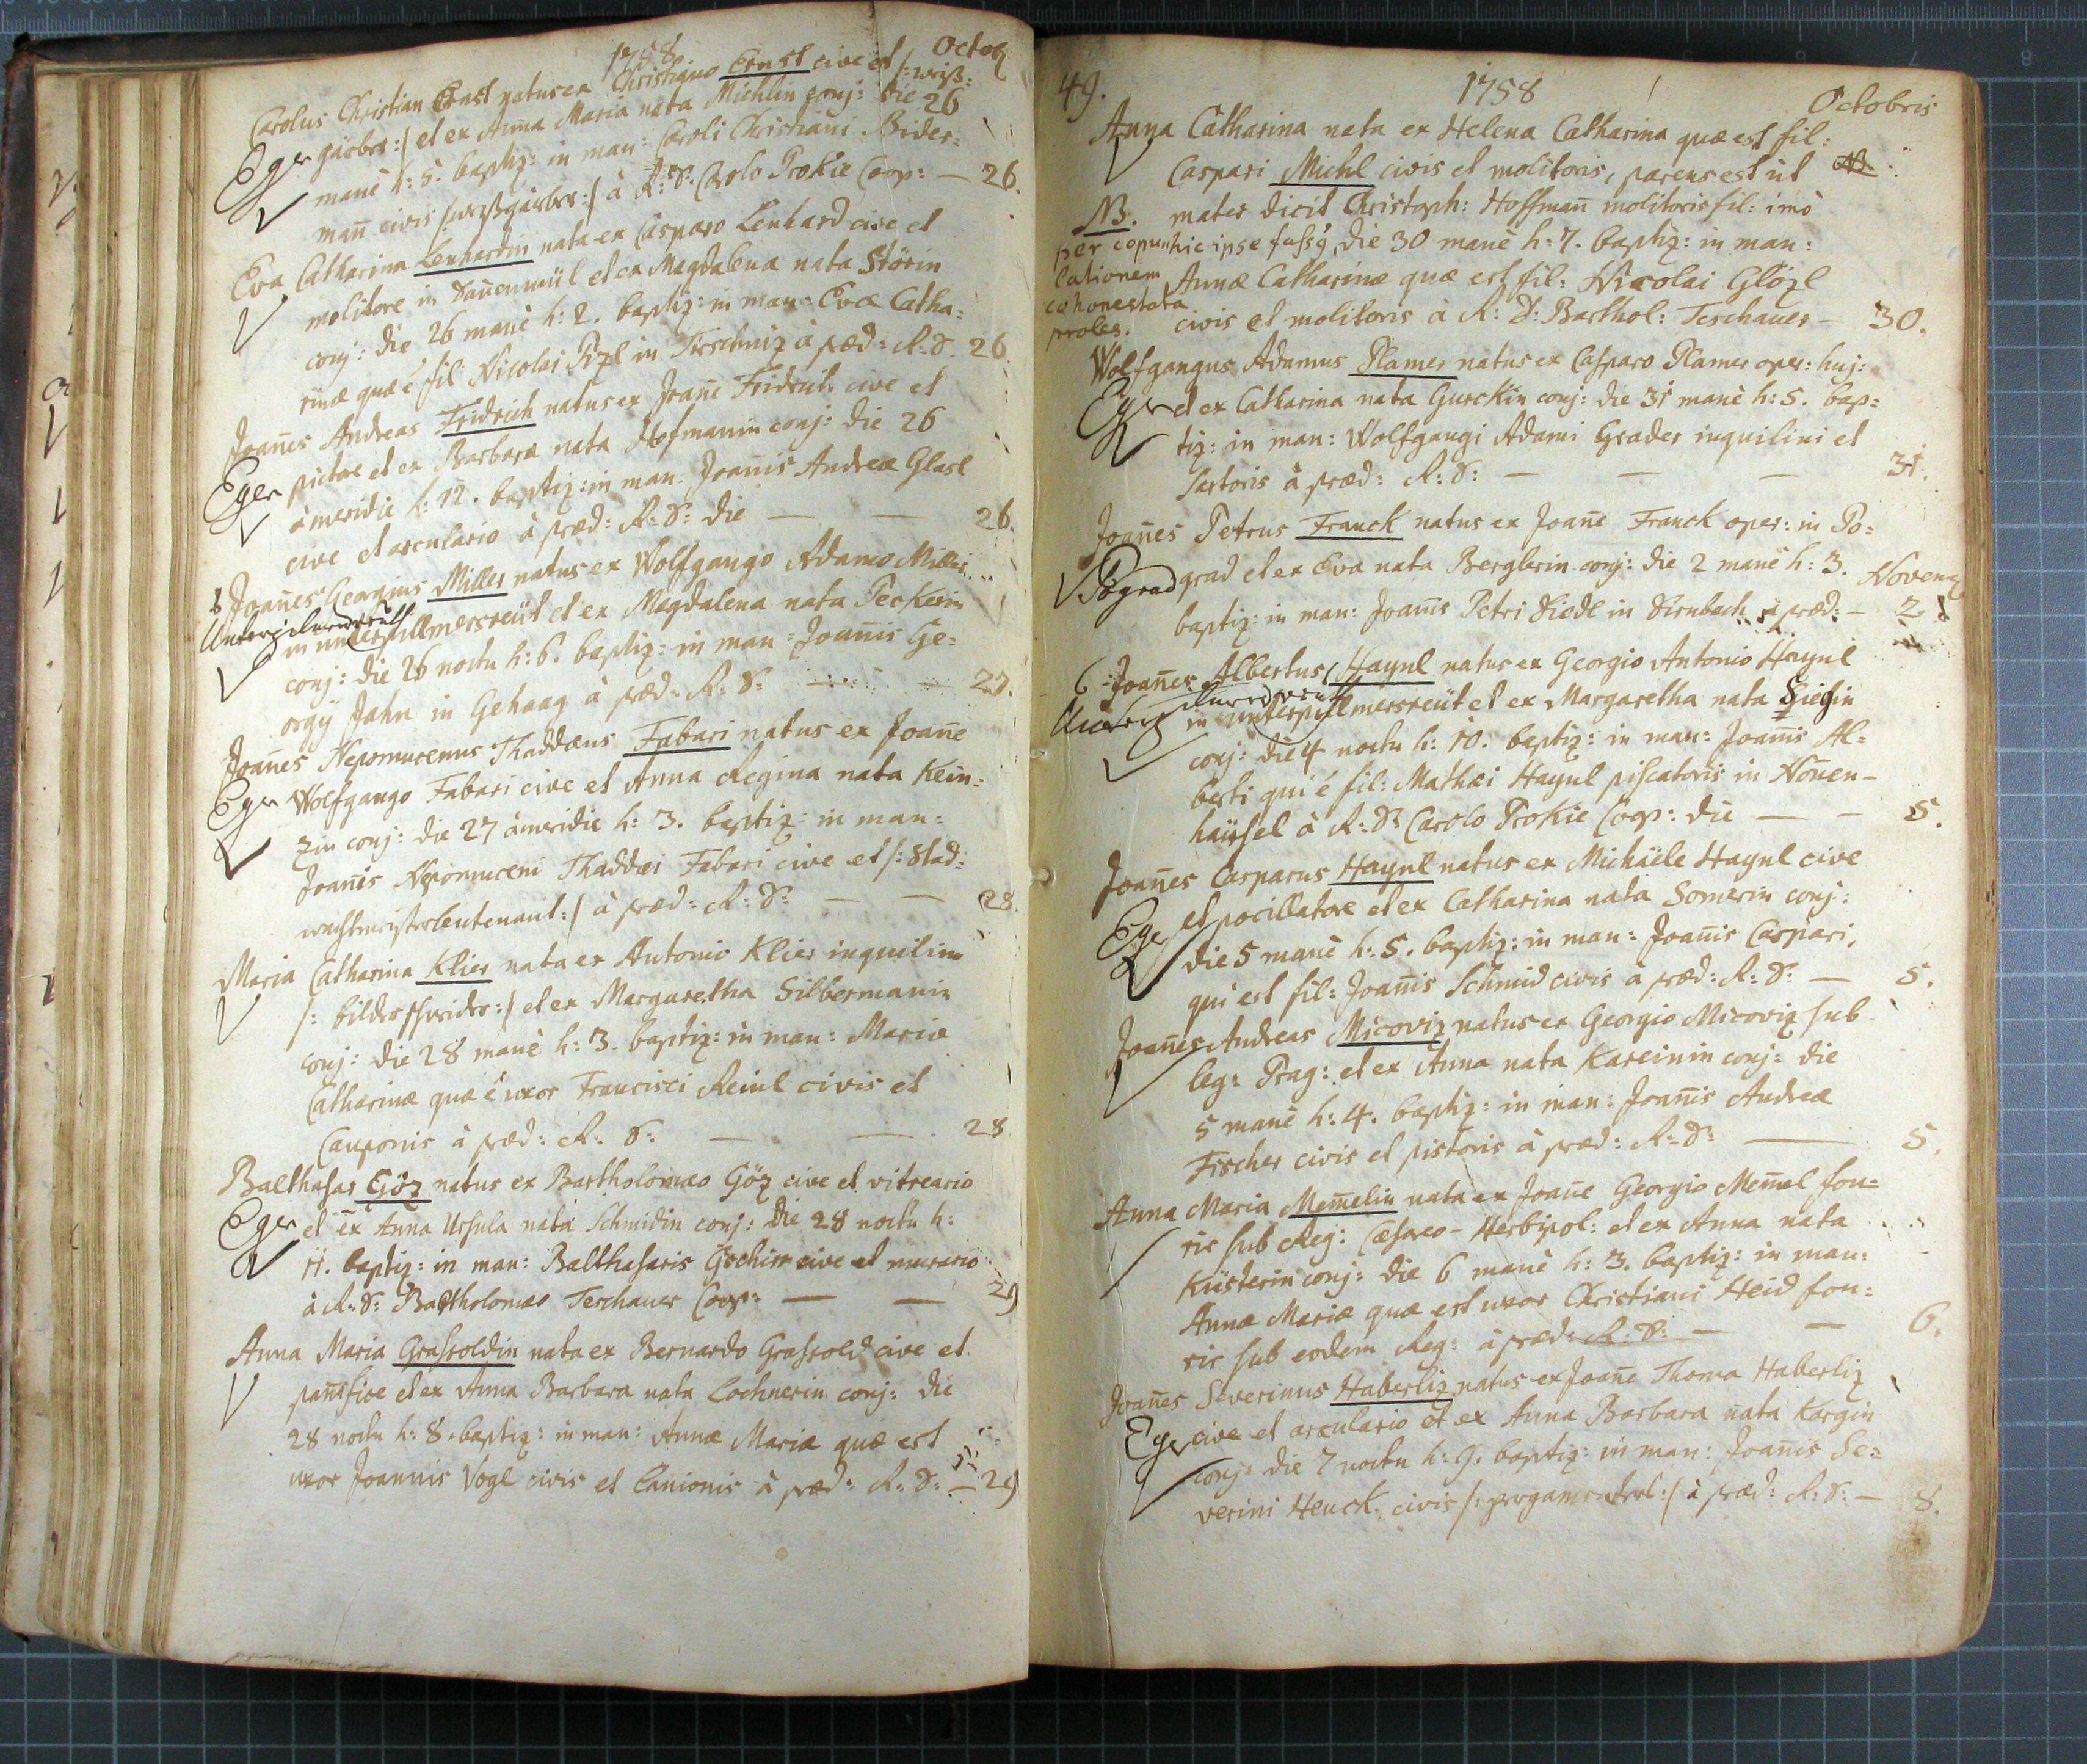 1758. Octob
Carolus Christian Ernst natus ex Christiano Ernst cive et /: weiß=
Eger gärber :/ et ex Anna Maria nata Michlin conj: die 26
manè h: 5. baptiz: in man: Caroli Christiani Bider=
mañ civis /: weißgärber :/ à R: D: Carolo Prokie Coop: — 26.
Eva Catharina Lenhardin nata ex Casparo Lenhard cive et
molitore in Tañenmül et ex Magdalena nata Störin
conj: die 26 manè h: 2. baptiz: in man: Evæ Catha=
rinæ quæ ē fil: Nicolai Pizl in Tirschniz à præd: R: D. 26
Joañes Andreas Fridrich natus ex Joañe Fridrich cive et
Eger pictore et ex Barbara nata Hofmanin conj: die 26
à meridie h: 12. baptiz: in man: Joañis Andreæ Glasl
cive et arculario à præd: R: D: die — — 26.
Joañes Georgius Miller natus ex Wolfgango Adamo Miller
in unterpillmersreüt et ex Magdalena nata Peckerin
conj: die 26 noctu h: 6. baptiz: in man: Joañis Ge=
orgÿ Jahn in Gehaag à præd: R: D: — — 27.
Joañes Nepomucenus Thaddæus Fabari natus ex Joañe
Eger Wolfgango Fabari cive et Anna Regina nata Kein=
zin conj: die 27 à meridie h: 3. baptiz: in man:
Joañis Nepomuceni Thaddæi Fabari cive et /: Stad=
wachtmeisterleutenant :/ à præd: R: D: — — 28.
Maria Catharina Klier nata ex Antonio Klier inquilino
/: bilderschneider :/ et ex Margaretha Silbermanin
conj: die 28 manè h: 3. baptiz: in man: Mariæ
Catharinæ quæ ē uxor Francisci Reinl civis et
Cauponis à præd: R: D: — — 28
Balthasar Göz natus ex Bartholomæo Göz cive et vitreario
Eger et ex Anna Ursula nata Schmidin conj: die 28 noctu h:
11. baptiz: in man: Balthasaris Gschier cive et murario
à R: D: Bartholomæo Teschauer Coop: — — 29
Anna Maria Grassoldin nata ex Bernardo Grassold cive et
pañifice et ex Anna Barbara nata Lochnerin conj: die
28 noctu h: 8. baptiz: in man: Annæ Mariæ quæ est
uxor Joannis Vogl civis et Lanionis à præd: R: D: — 29
49. 1758 Octobris
Anna Catharina nata ex Helena Catharina quæ est fil:
Caspari Michl civis et molitoris, parens est ut
NB. mater dicit Christoph: Hoffmañ molitoris fil: imò
per copu= hic ipse fassq die 30 manè h: 7. baptiz: in man:
lationem Annæ Catharinæ quæ est fil: Nicolai Glözl
cohonestata
proles. civis et molitoris à R: D: Barthol: Teschauer — 30.
Wolfgangus Adamus Plamer natus ex Casparo Plamer oper: huj:
Eger et ex Catharina nata Gurckin conj: die 31 manè h: 5. bap=
tiz: in man: Wolfgangi Adami Grader inquilini et
Sartoris à præd: R: D: — — — 31.
Joañes Petrus Franck natus ex Joañe Franck oper: in Po=
Pograd grad et ex Eva nata Berglerin conj: die 2 manè h: 3. Novemb
baptiz: in man: Joañis Petri Riedl in Dirnbach à præd: — 2.
Joañes Albertus Haynl natus ex Georgio Antonio Haynl
in unterpillmersreüt et ex Margaretha nata Sieglin
conj: die 4 noctu h: 10. baptiz: in man: Joañis Al=
berti qui ē fil: Mathæi Haynl piscatoris in Nonen=
haüsel à R: D: Carolo Prokie Coop: die — — 5.
Joañes Casparus Haynl natus ex Michäele Haynl cive
Eger et pocillatore et ex Catharina nata Somerin conj:
die 5 manè h: 5. baptiz: in man: Joañis Caspari,
qui est fil: Joañis Schmid civis à præd: R: D: — 5.
Joañes Andreas Micoviz natus ex Georgio Micoviz sub
leg: Prag: et ex Anna nata Kareinin conj: die
5 manè h: 4. baptiz: in man: Joañis Andreæ
Fischer civis et pistoris à præd: R: D: — 5.
Anna Maria Memelin nata ex Joañe Georgio Memel fou=
rir sub Reg: Cæsareo-Herbipol: et ex Anna nata
Küsterin conj: die 6 manè h: 3. baptiz: in man:
Annæ Mariæ quæ est uxor Christiani Heid fou=
rir sub eodem Reg: à præd: R: D: — — 6.
Joañes Severinus Haberliz natus ex Joañe Thoma Haberliz
Eger cive et arculario et ex Anna Barbara nata Kargin
conj: die 7 noctu h: 9. baptiz: in man: Joañis Se=
verini Heuck civis /: pergamenterl :/ à præd: R: D: — 8.